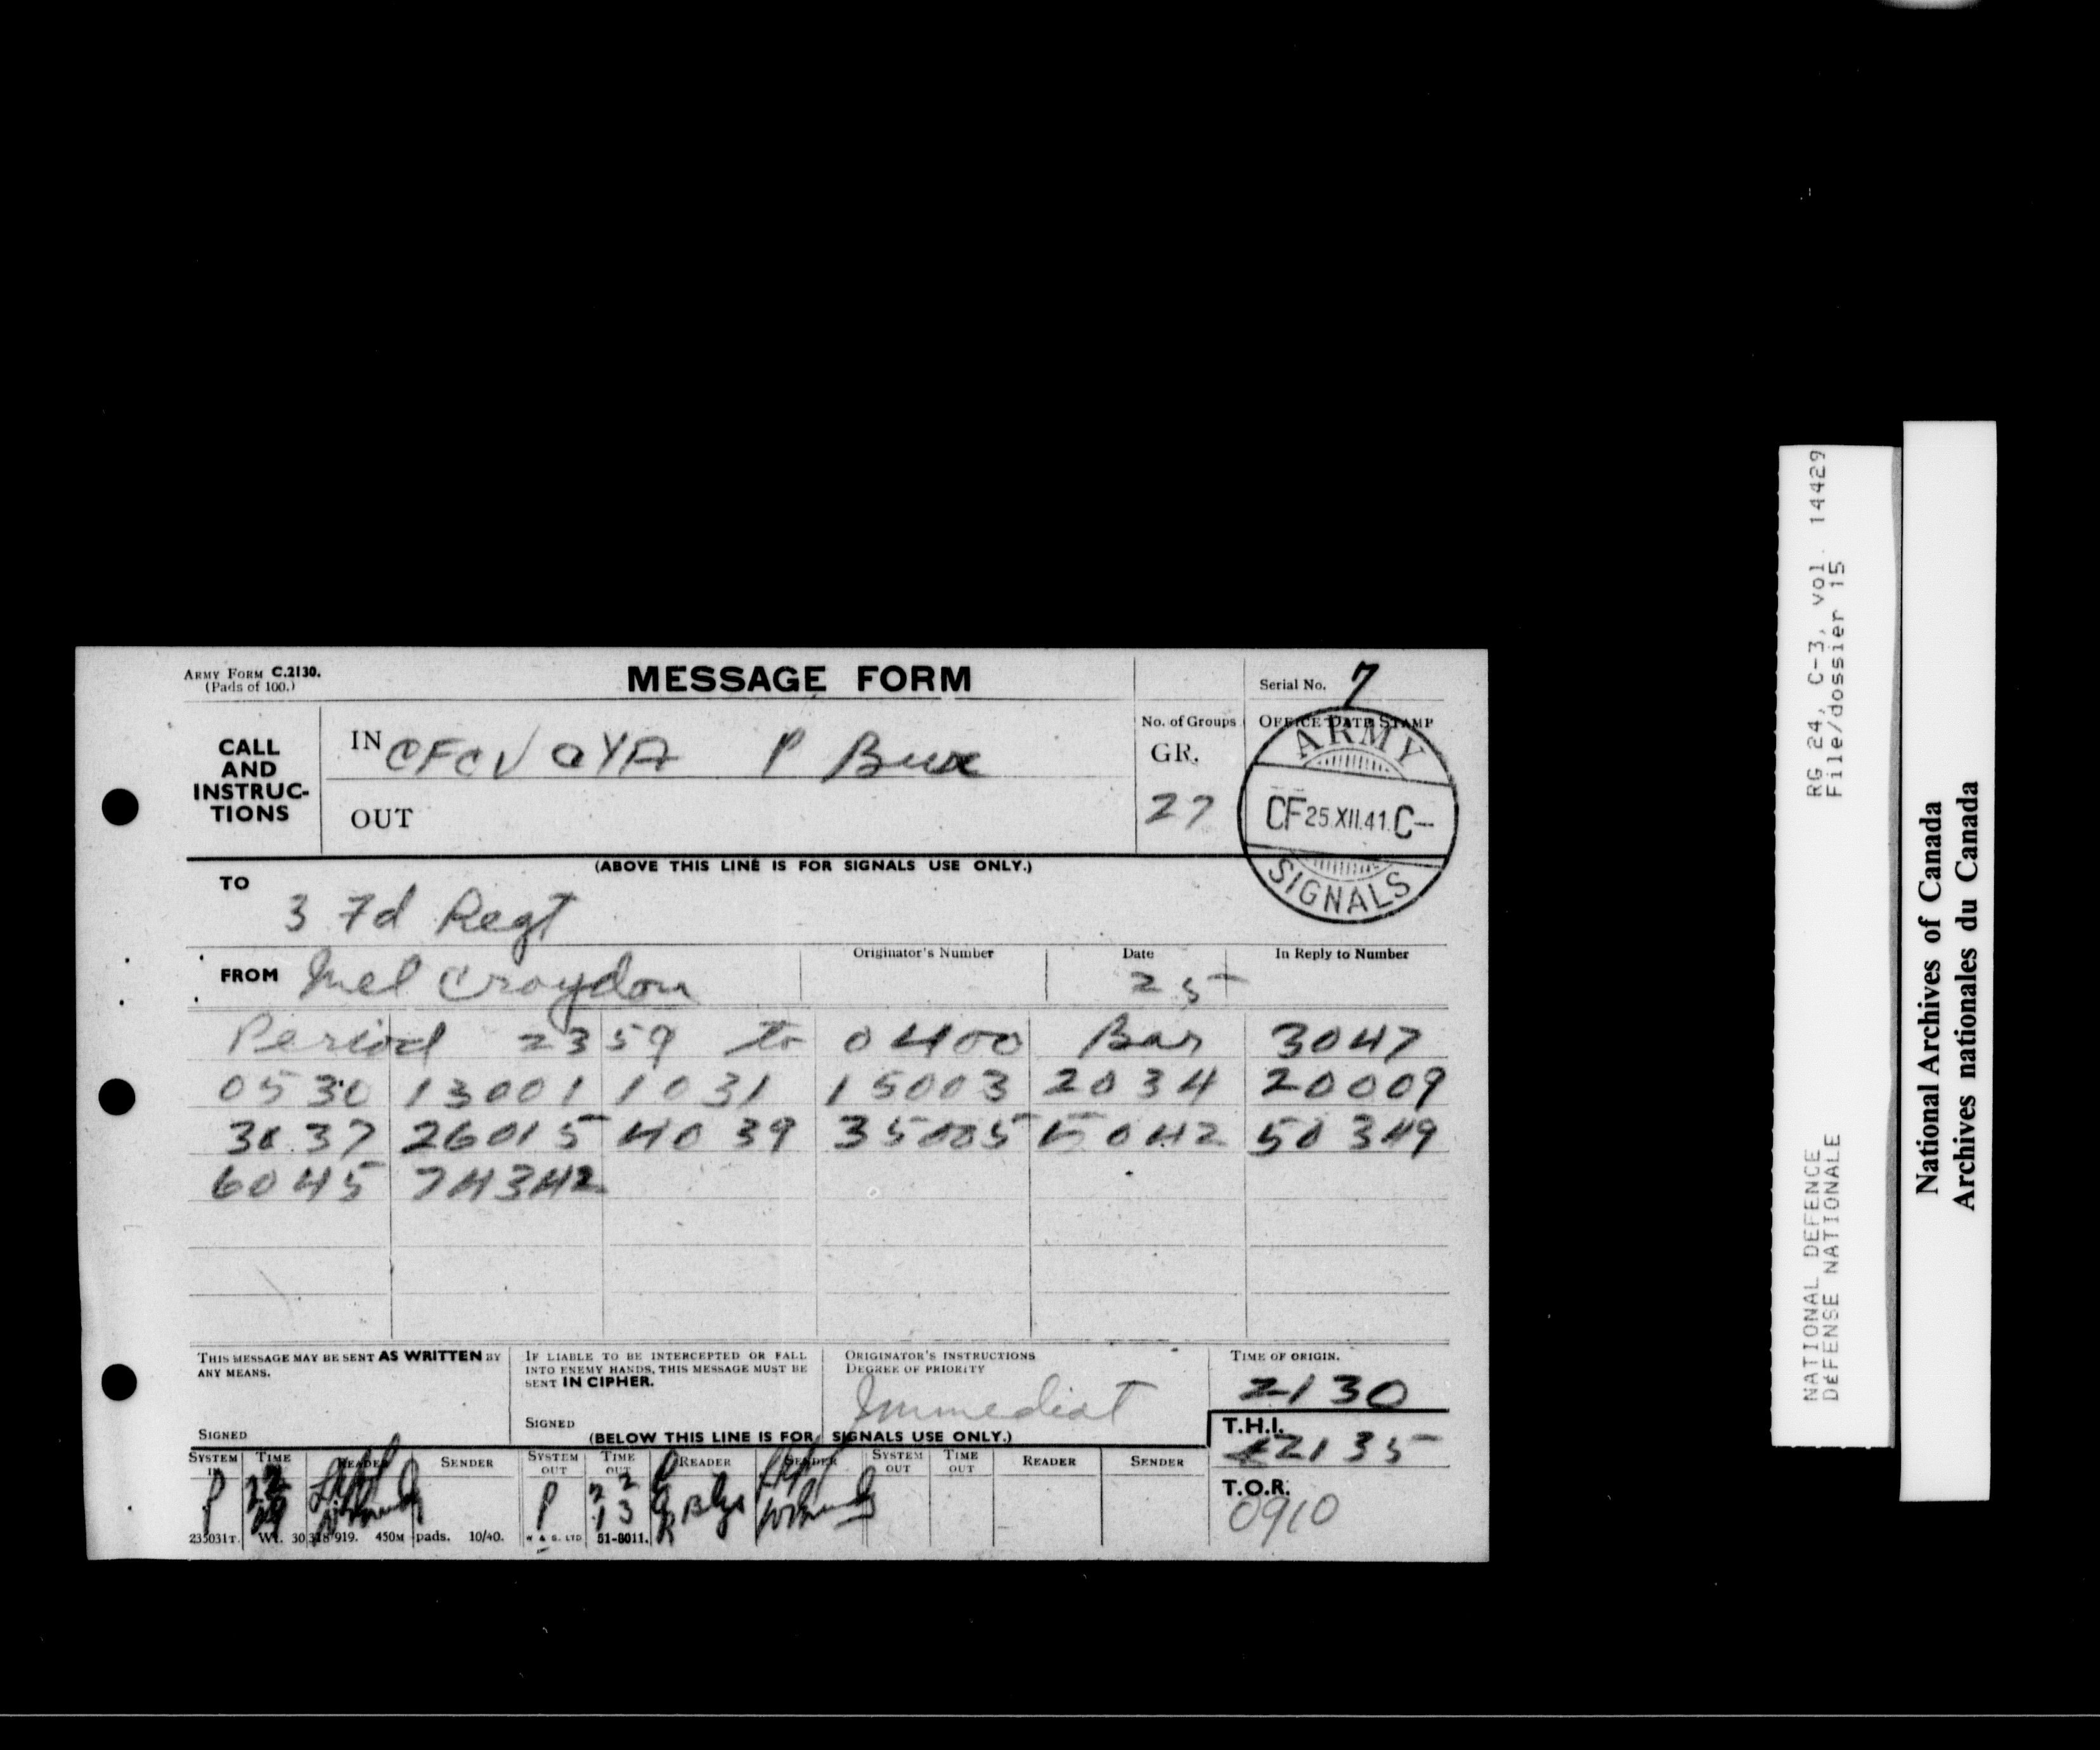 ARMY FORM C.2130.
(Pads of 100.)
MESSAGE FORM
Serial No. 7
CALL AND INSTRUCTIONS
IN CFCV OYA P
OUT
No. of Groups
GR.
27
OFFICE DATE STAMP
ARMY
CF 25.XII.41.C-
SIGNALS
(ABOVE THIS LINE IS FOR SIGNALS USE ONLY.)
TO
3 7d Regt
FROM Mel Croydon
Originator's Number
Date
25
In Reply to Number
Period 2359 to 0400 Bar 3047
0530 13001 1031 15003 2034 20009
3037 26015 4039 35005 5042 50349
6045 74342
THIS MESSAGE MAY BE SENT AS WRITTEN BY ANY MEANS.
SIGNED
IF LIABLE TO BE INTERCEPTED OR FALL INTO ENEMY HANDS, THIS MESSAGE MUST BE SENT IN CIPHER.
SIGNED
ORIGINATOR'S INSTRUCTIONS
DEGREE OF PRIORITY
Immediat
TIME OF ORIGIN.
2130
(BELOW THIS LINE IS FOR SIGNALS USE ONLY.)
T.H.I.
2135
T.O.R.
0910
SYSTEM IN TIME READER SENDER SYSTEM OUT TIME OUT READER SENDER SYSTEM OUT TIME OUT READER SENDER
P P 22 13
235031T. Wt. 30318/919. 450M pads. 10/40. W & S. LTD 51-8011.
RG 24, C-3, vol. 14429
File/dossier 15
NATIONAL DEFENCE
DÉFENSE NATIONALE
National Archives of Canada
Archives nationales du Canada